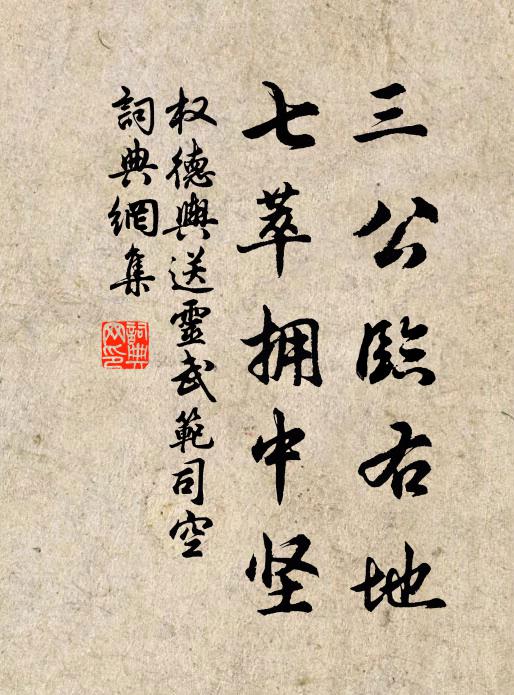 三公臨右地
七萃拥中坚
权德輿送靈武範司空
詞典網集
詞典網印